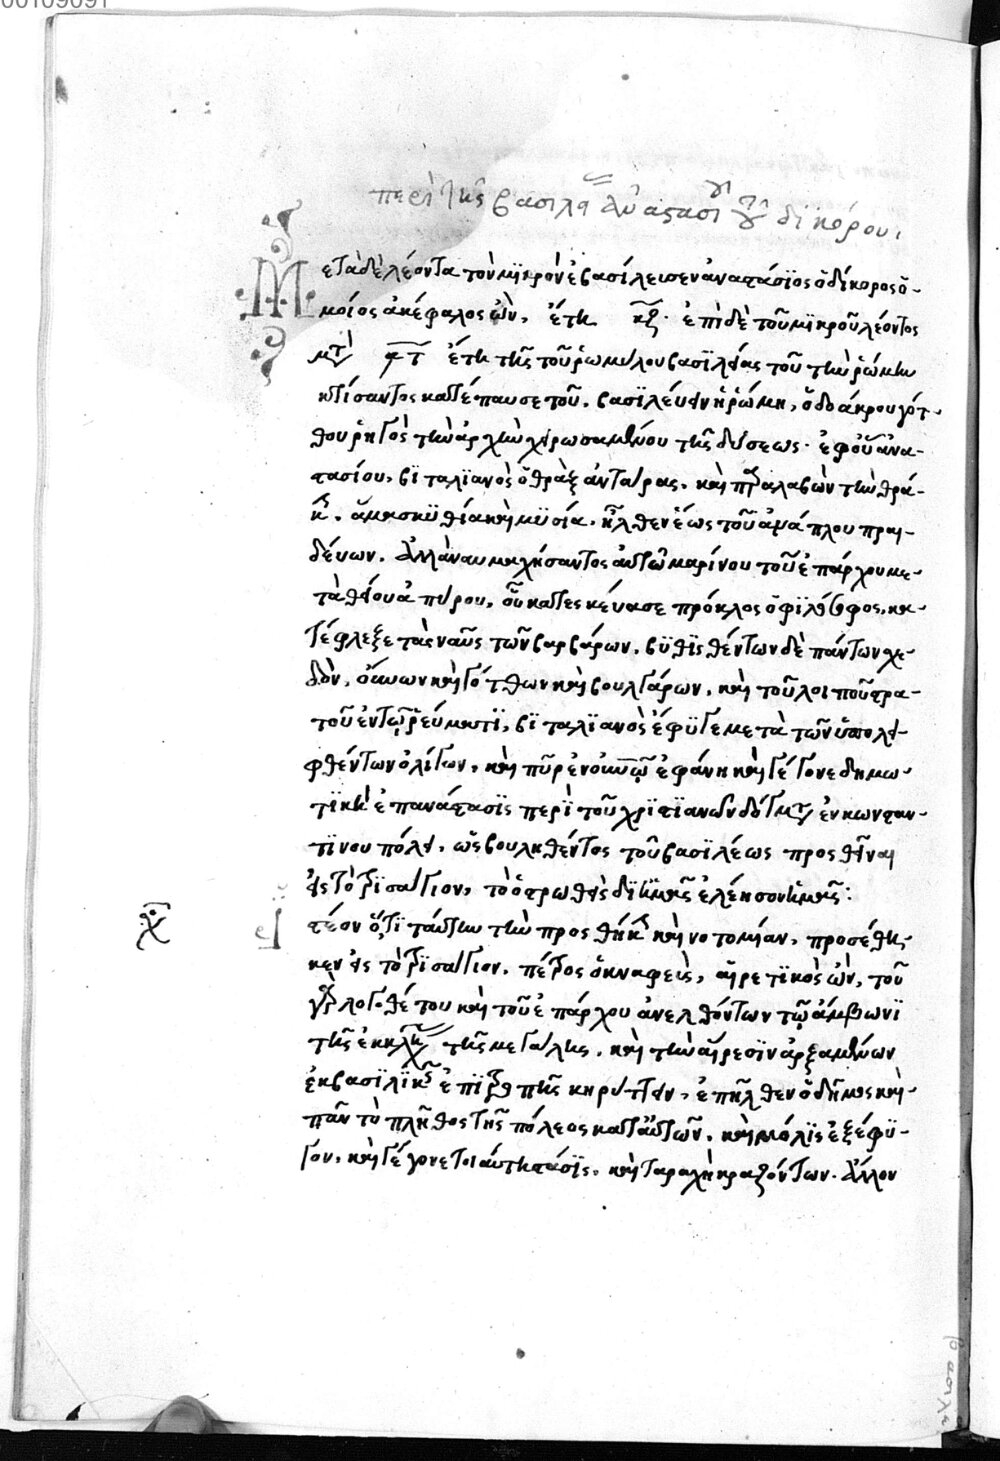 00109091
περὶ τῆς βασιλεί ἀναστασίου τοῦ δικόρου.
Μετὰ δὲ λέοντα τὸν μϊκρὸν ἐβασίλεισεν ἀναστάσϊος ὁ δίκορος ὁ-
μοίος ἀκέφαλος ὢν, ἔτη κζ. ἐπὶ δὲ τοῦ μϊκροῦ λέοντος
μετὰ ἔτη τῆς τοῦ ῥωμύλου βασϊλείας τοῦ τὴν ῥώμην
κτίσαντος κατέπαυσε τοῦ, βασϊλεύειν ἡ ῥώμη, ὀδοάκρου γότ-
θου ῥηγὸς τὴν ἀρχὴν χειρωσαμένου τῆς δύσεως. ἐφ οὗ ἀνα-
τασίου, βϊταλϊανὸς ὁ θρᾲξ ἀντάρας, καὶ παραλαβὼν τὴν θρά-
κην, ἅμα σκϋθία καὶ μϋσία, ἦλθεν ἕως τοῦ ἀνάπλου πραι-
δέυων. ἀλλὰ ναυμαχήσαντος ἀυτῶ μαρίνου τοῦ ἐπάρχου με-
τὰ θείου ἀπύρου, οὗ κατεσκέυασε πρόκλος ὁ φϊλόσοφος, κα-
τέφλεξε τὰς ναῦς τῶν βαρβάρων. βϋθϊσθέντων δὲ πάντων σχε-
δὸν, οὔνων καὶ γότθων καὶ βουλγάρων, καὶ τοῦ λοιποῦ στρα-
τοῦ ἐν τῷ ῥεύματϊ, βϊταλϊανὸς ἔφϋγε μετὰ τῶν ὑπολει-
φθέντων ὀλίγων, καὶ πῦρ ἐν οὐνῷ ἐφάνη καὶ γέγονε δημω-
τϊκὴ ἐπανάστασϊς περὶ τοῦ χρϊστϊανῶν δόγματος ἐν κωνσταν-
τϊνουπόλει, ὡς βουληθέντος τοῦ βασϊλέως προσθῆναι
εἰς τὸ τρϊσάγιον, τὸ ὁ στρωθεὶς δϊ ἡμᾶς ἐλέησον ἡμᾶς:
Ἰστέον ὅτϊ ταύτην τὴν προσθήκην καὶ νοτομίαν, προσέθη-
κεν εἰς τὸ τρϊσάγιον, πέτρος ὁ κναφεὺς, αἱρετϊκὸς ὢν, τοῦ
λογοθέτου καὶ τοῦ ἐπάρχου ἀνελθόντων τῷ ἄμβωνϊ
τῆς ἐκκλησίας τῆς μεγάλης, καὶ τὴν αἵρεσϊν ἀρξαμένων
ἐκ βασϊλϊκῆς ἐπϊτροπῆς κηρύττειν, ἐπῆλθεν ὁ δῆμος καὶ
πᾶν τὸ πλῆθος τῆς πόλεος κατ ἀυτῶν, καὶ μόλϊς ἐξέφϋ-
γον, καὶ γέγονε τοιάυτη στάσϊς, καὶ ταραχὴ κραζόντων. ἄλλον
βασιλε